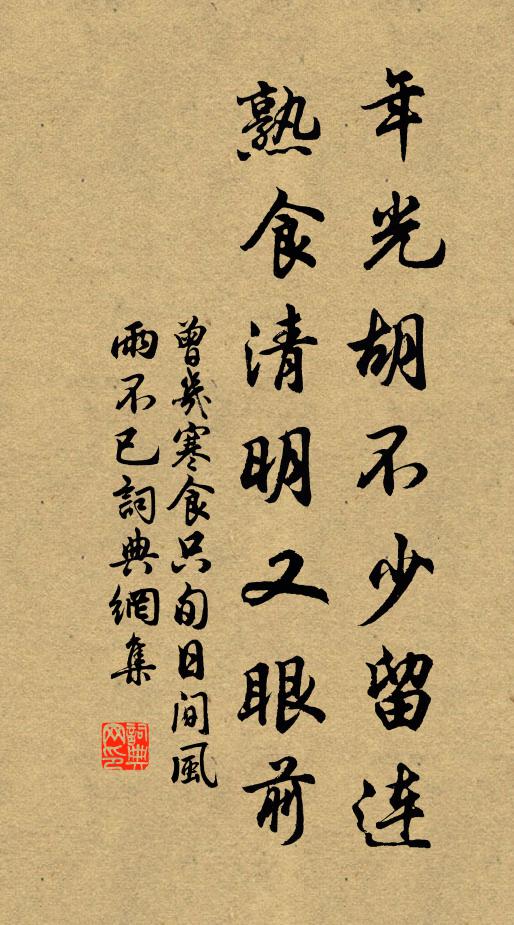 年光胡不少留连
熟食清明又眼前
曾幾寒食只旬日间風
雨不已詞典網集
詞典
网印